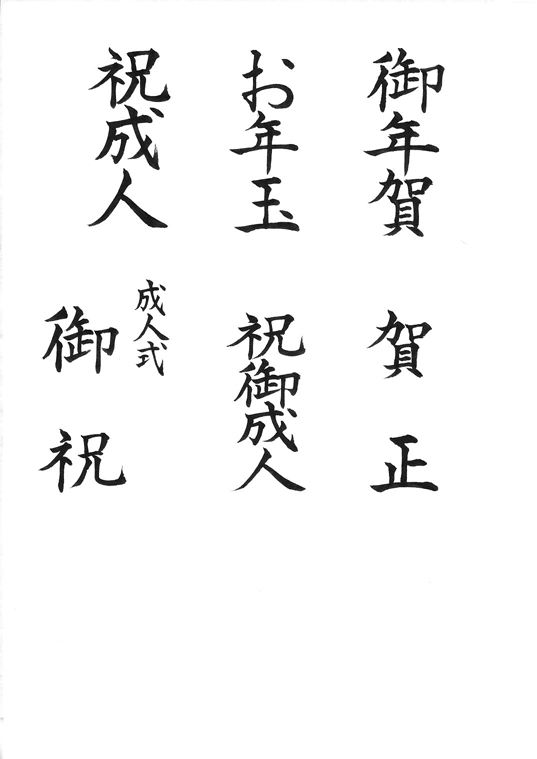 御年賀
お年玉
祝成人
賀正
祝御成人
成人式
御祝